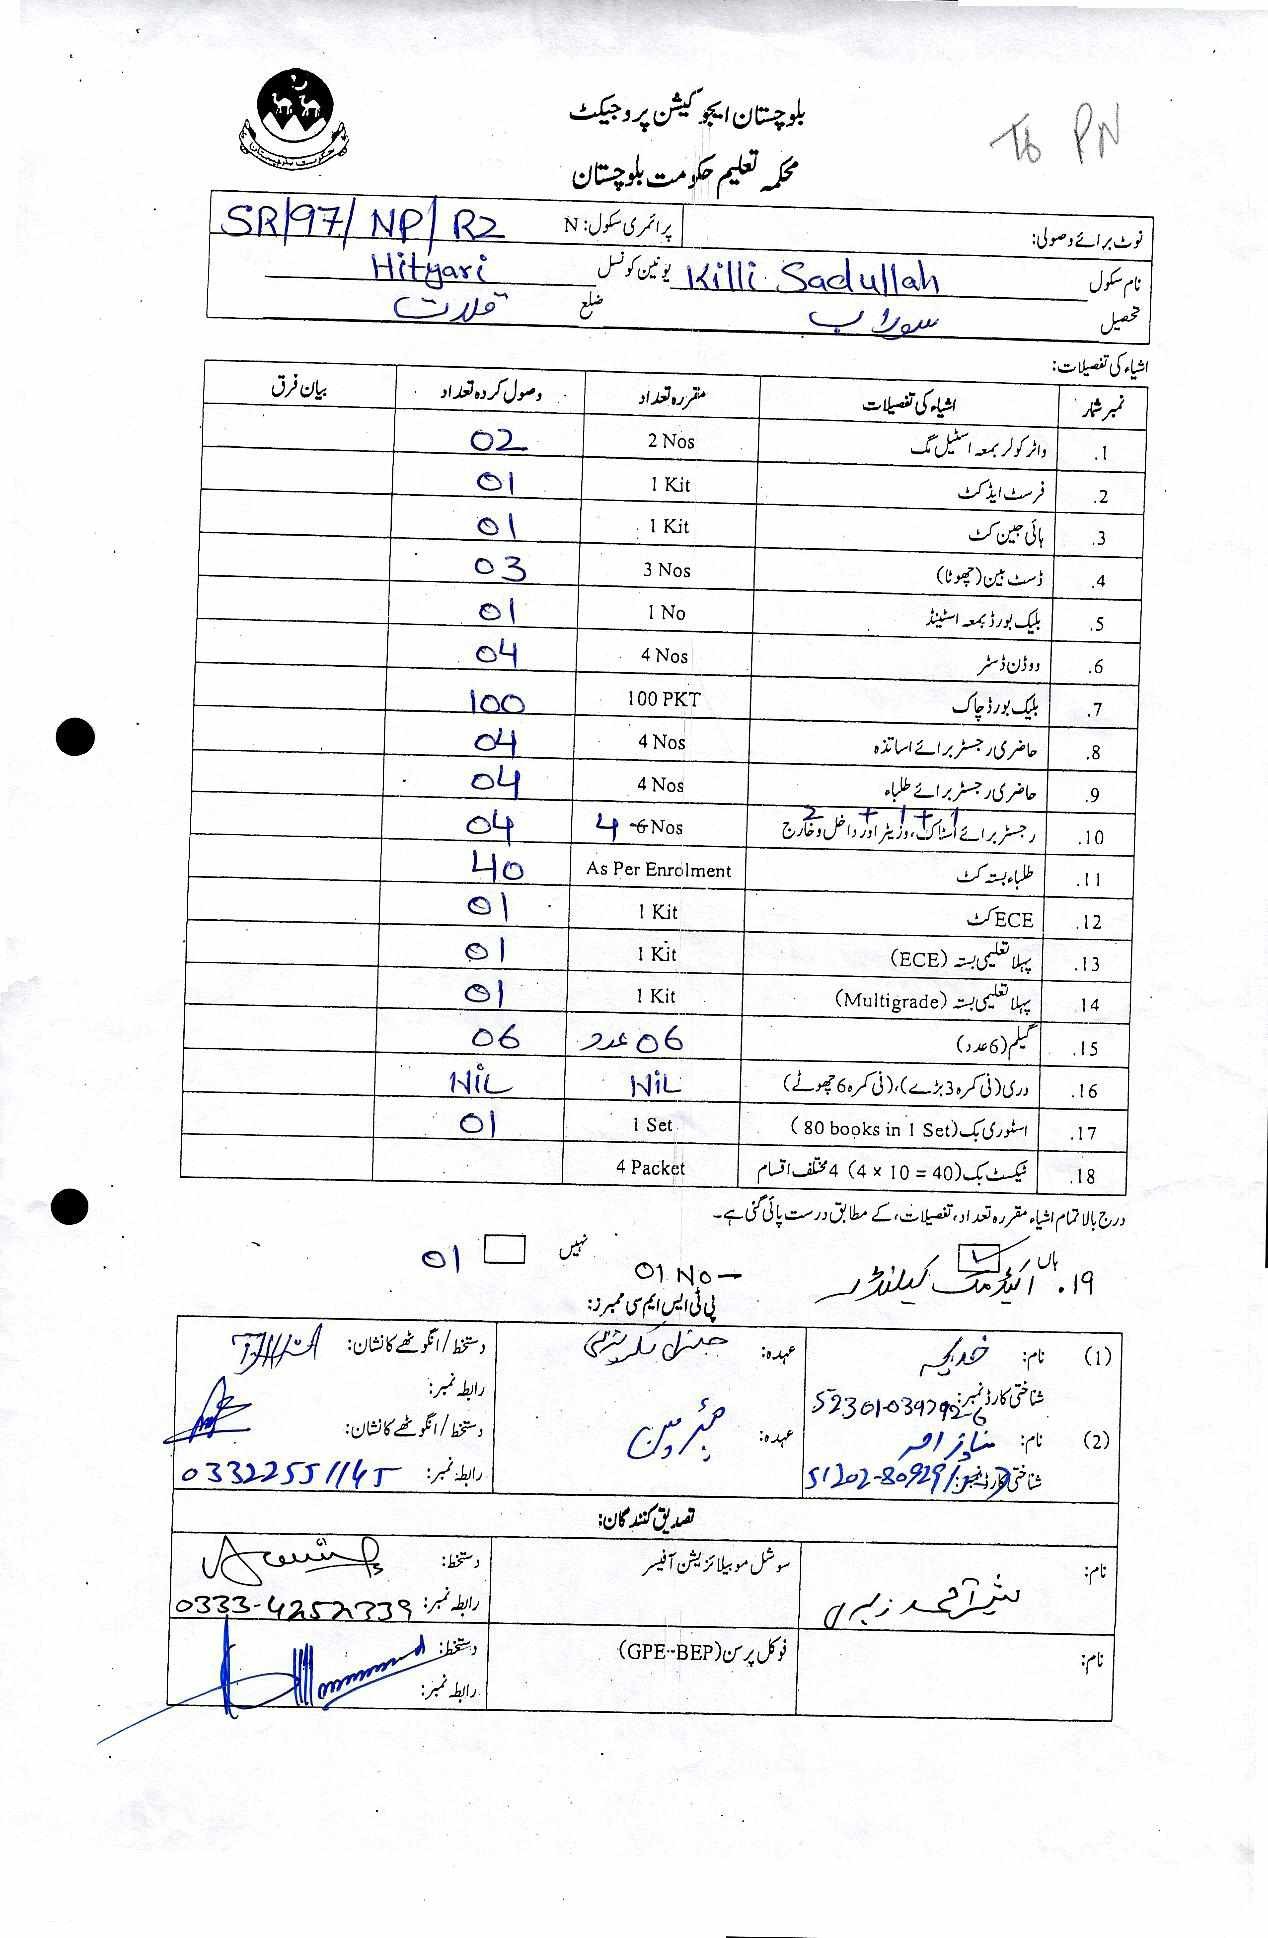 بلوچستان ایجوکیشن پروجیکٹ
To PN
محکمہ تعلیم حکومت بلوچستان
حکومت بلوچستان
نوٹ برائے وصولی: پرائمری سکول: N SR/97/NP/R2
نام سکول Killi Sadullah یونین کونسل Hityari
تحصیل سوراب ضلع قلات
اشیاء کی تفصیلات:
نمبر شمار اشیاء کی تفصیلات مقررہ تعداد وصول کردہ تعداد بیان فرق
1. واٹر کولر بمعہ اسٹیل مگ 2 Nos 02
2. فرسٹ ایڈ کٹ 1 Kit 01
3. ہائی جین کٹ 1 Kit 01
4. ڈسٹ بین (چھوٹا) 3 Nos 03
5. بلیک بورڈ بمعہ اسٹینڈ 1 No 01
6. ووڈن ڈسٹر 4 Nos 04
7. بلیک بورڈ چاک 100 PKT 100
8. حاضری رجسٹر برائے اساتذہ 4 Nos 04
9. حاضری رجسٹر برائے طلباء 4 Nos 04
2 + 1 + 1
10. رجسٹر برائے اسٹاک، وزیٹر اور داخل و خارج 4 6 Nos 04
11. طلباء بستہ کٹ As Per Enrolment 40
12. ECE کٹ 1 Kit 01
13. پہلا تعلیمی بستہ (ECE) 1 Kit 01
14 پہلا تعلیمی بستہ (Multigrade) 1 Kit 01
15. گلیم (6 عدد) 06 عدد 06
16. دری (فی کمرہ 3 بڑے)، (فی کمرہ 6 چھوٹے) NiL NiL
17. اسٹوری بک (80 books in 1 Set) 1 Set 01
18. ٹیکسٹ بک (4 × 10 = 40) 4 مختلف اقسام 4 Packet
درج بالا تمام اشیاء مقررہ تعداد، تفصیلات، کے مطابق درست پائی گئی ہے۔
ہاں نہیں
19. اکیڈمک کیلنڈر 01 No 01
پی ٹی ایس ایم سی ممبرز:
(1) نام: خدیجہ عہدہ: جنرل سکریٹری دستخط/انگوٹھے کا نشان:
شناختی کارڈ نمبر: رابطہ نمبر:
(2) نام: عہدہ: چئرمین دستخط/انگوٹھے کا نشان:
شناختی کارڈ نمبر: رابطہ نمبر: 03322551145
تصدیق کنندگان:
نام: سوشل موبیلائزیشن آفیسر دستخط:
رابطہ نمبر: 0333-4252339
نام: فوکل پرسن (GPE-BEP) دستخط:
رابطہ نمبر: